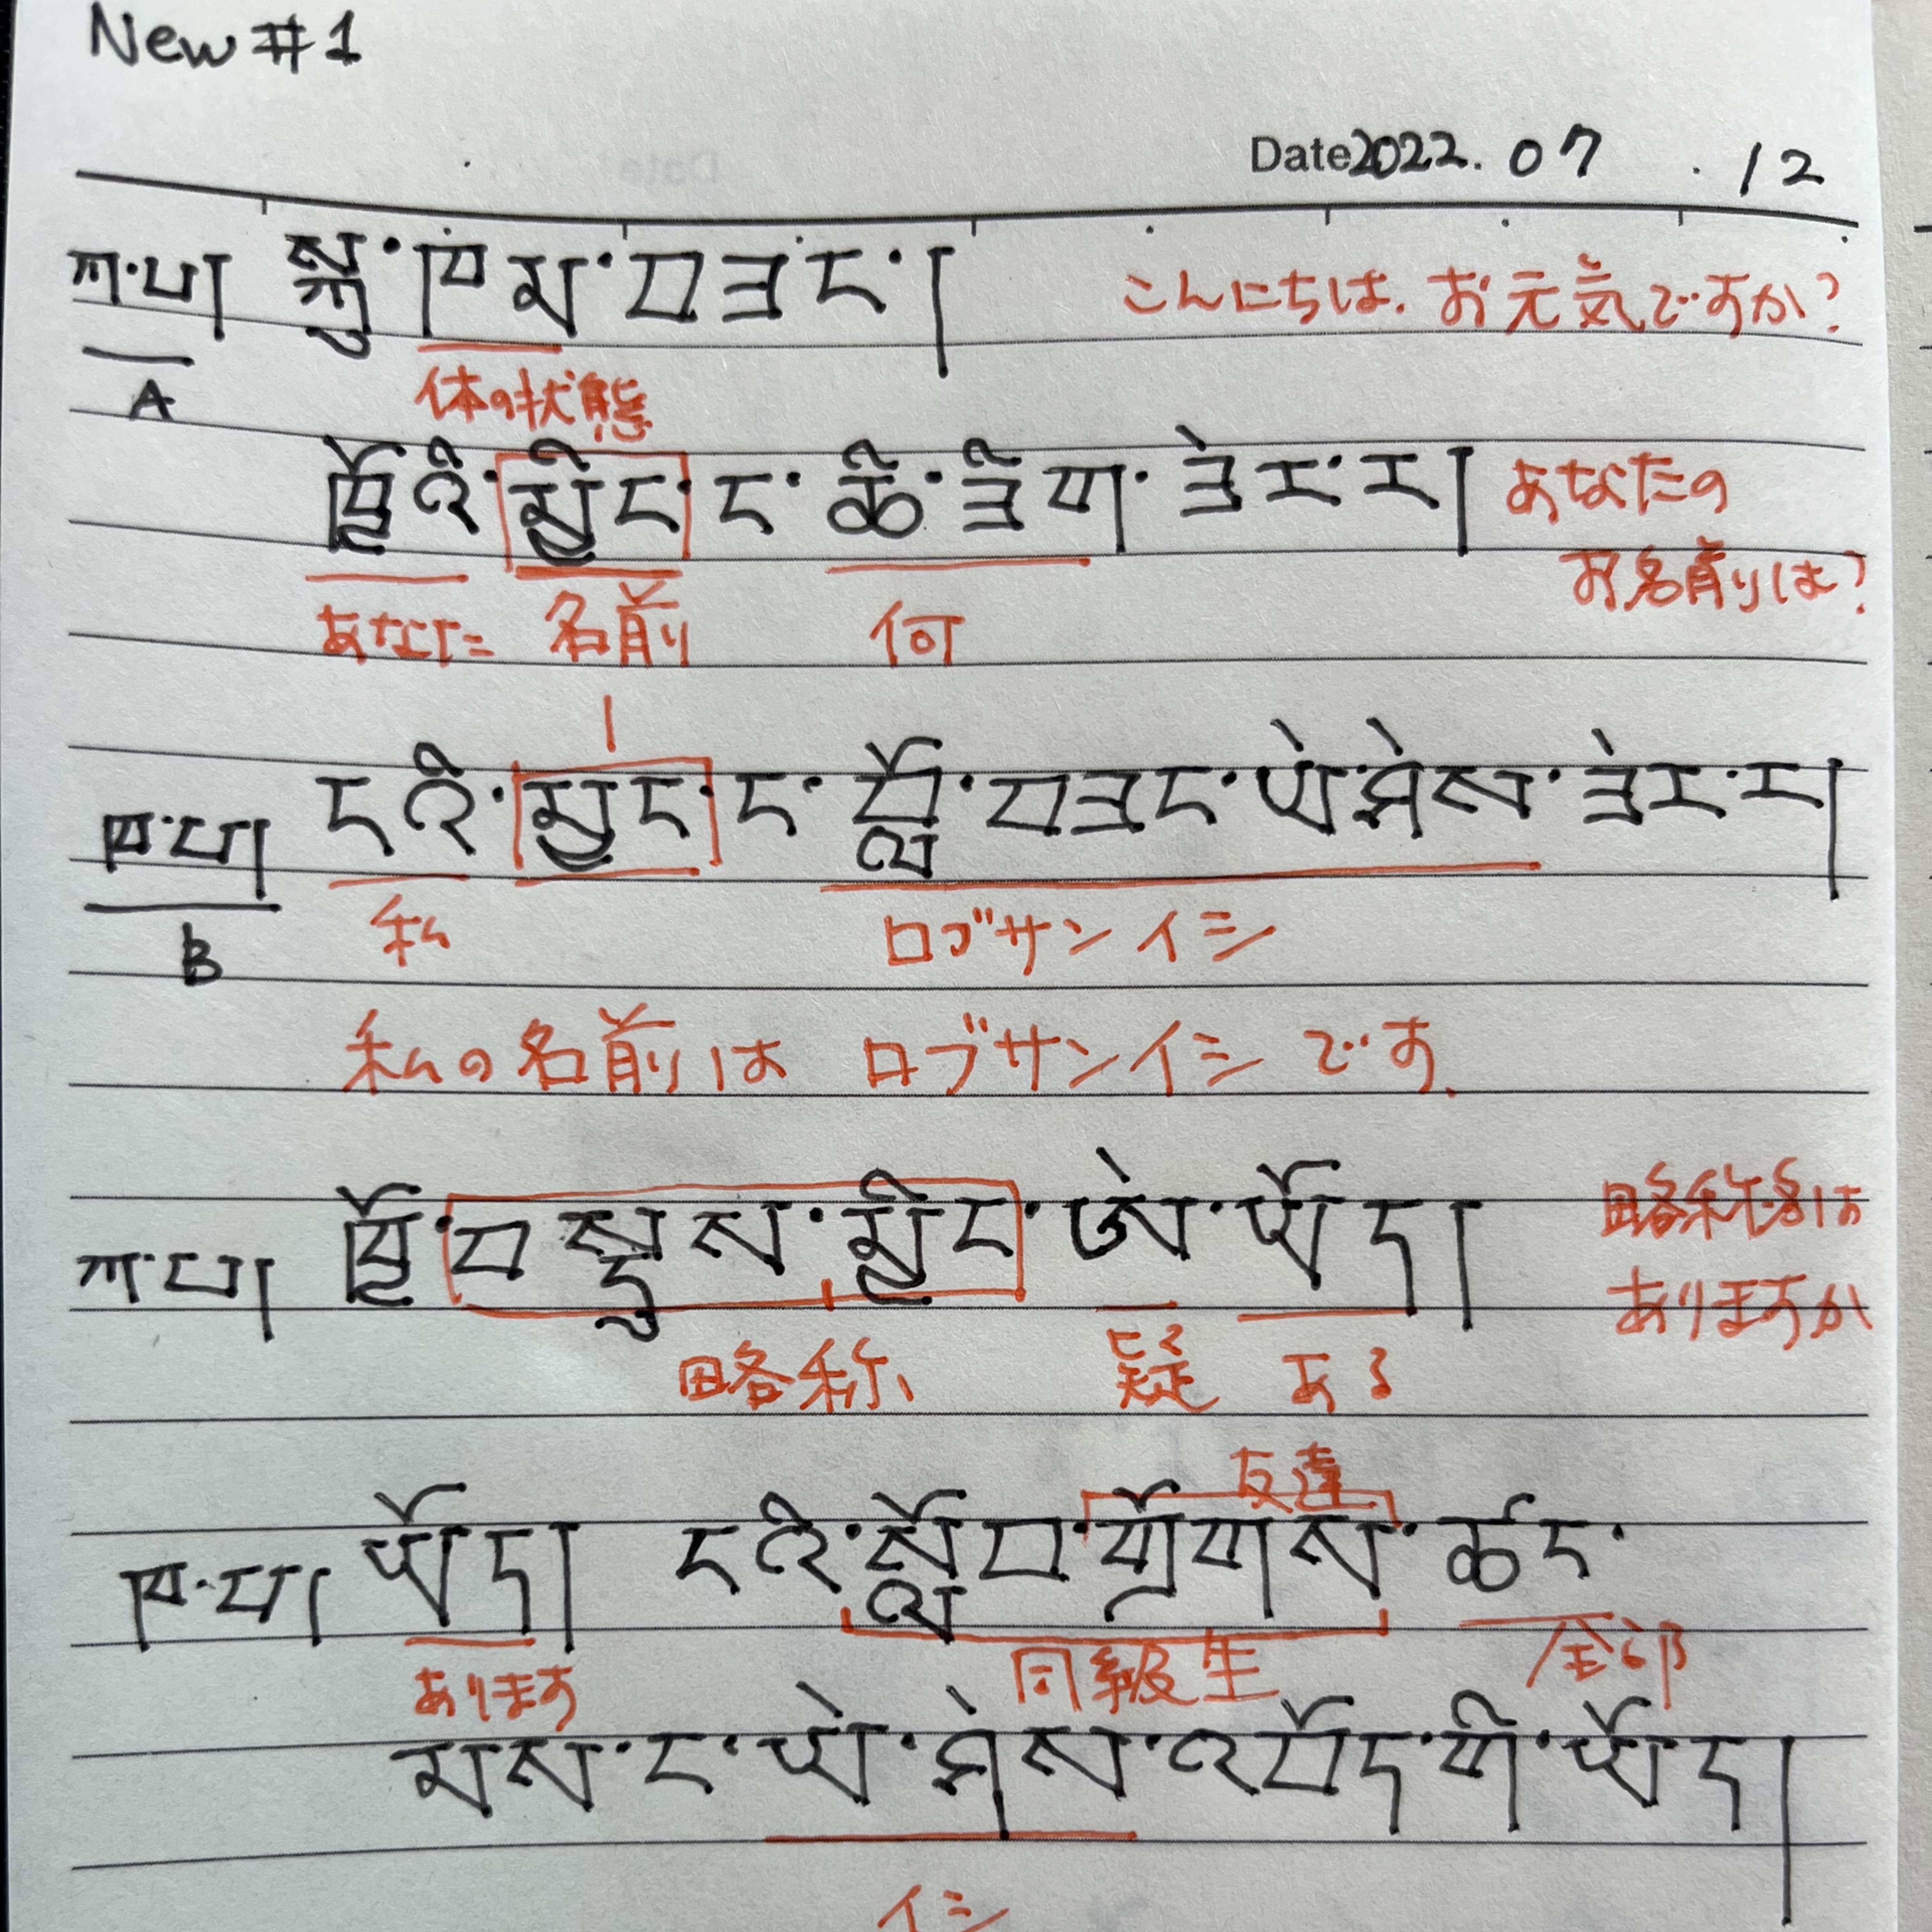 New #1
Date 2022. 07 . 12
ཀ་པ། སྐུ་ཁམ་བཟང་། こんにちは. お元気ですか?
A 体の状態
ཁྱོའི་མྱིང་ང་ཆི་ཟིག་ཟེར་ར། あなたの
お名前は?
あなた 名前 何
ཁ་པ། ངའི་མྱང་ང་བློ་བཟང་ཡེ་ཤེས་ཟེར་ར།
B 私 ロブサンイシ
私の名前は ロブサンイシ です.
ཀ་པ། ཁྱོ་བསྡུས་མྱིང་ཨེ་ཡོད། 略称名は
ありますか
略称 疑 ある
友達
ཁ་པ། ཡོད། ངའི་སློབ་གྲོགས་ཚང་
あります 同級生 全部
མས་ང་ཡེ་ཤེས་འབོད་གི་ཡོད།
イシ